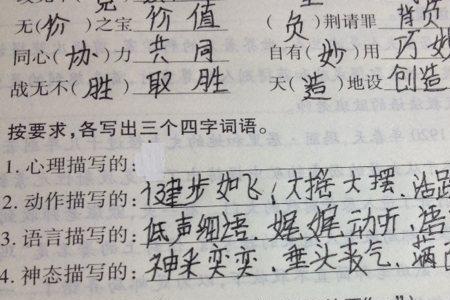 无(价)之宝 价值 (负)荆请罪 背负
同心(协)力 共同 自有(妙)用 巧妙
战无不(胜) 取胜 天(造)地设 创造
按要求,各写出三个四字词语。
1. 心理描写的:
2. 动作描写的: 健步如飞、大摇大摆、
3. 语言描写的: 低声细语、娓娓动听、语
4. 神态描写的: 神采奕奕、垂头丧气、满